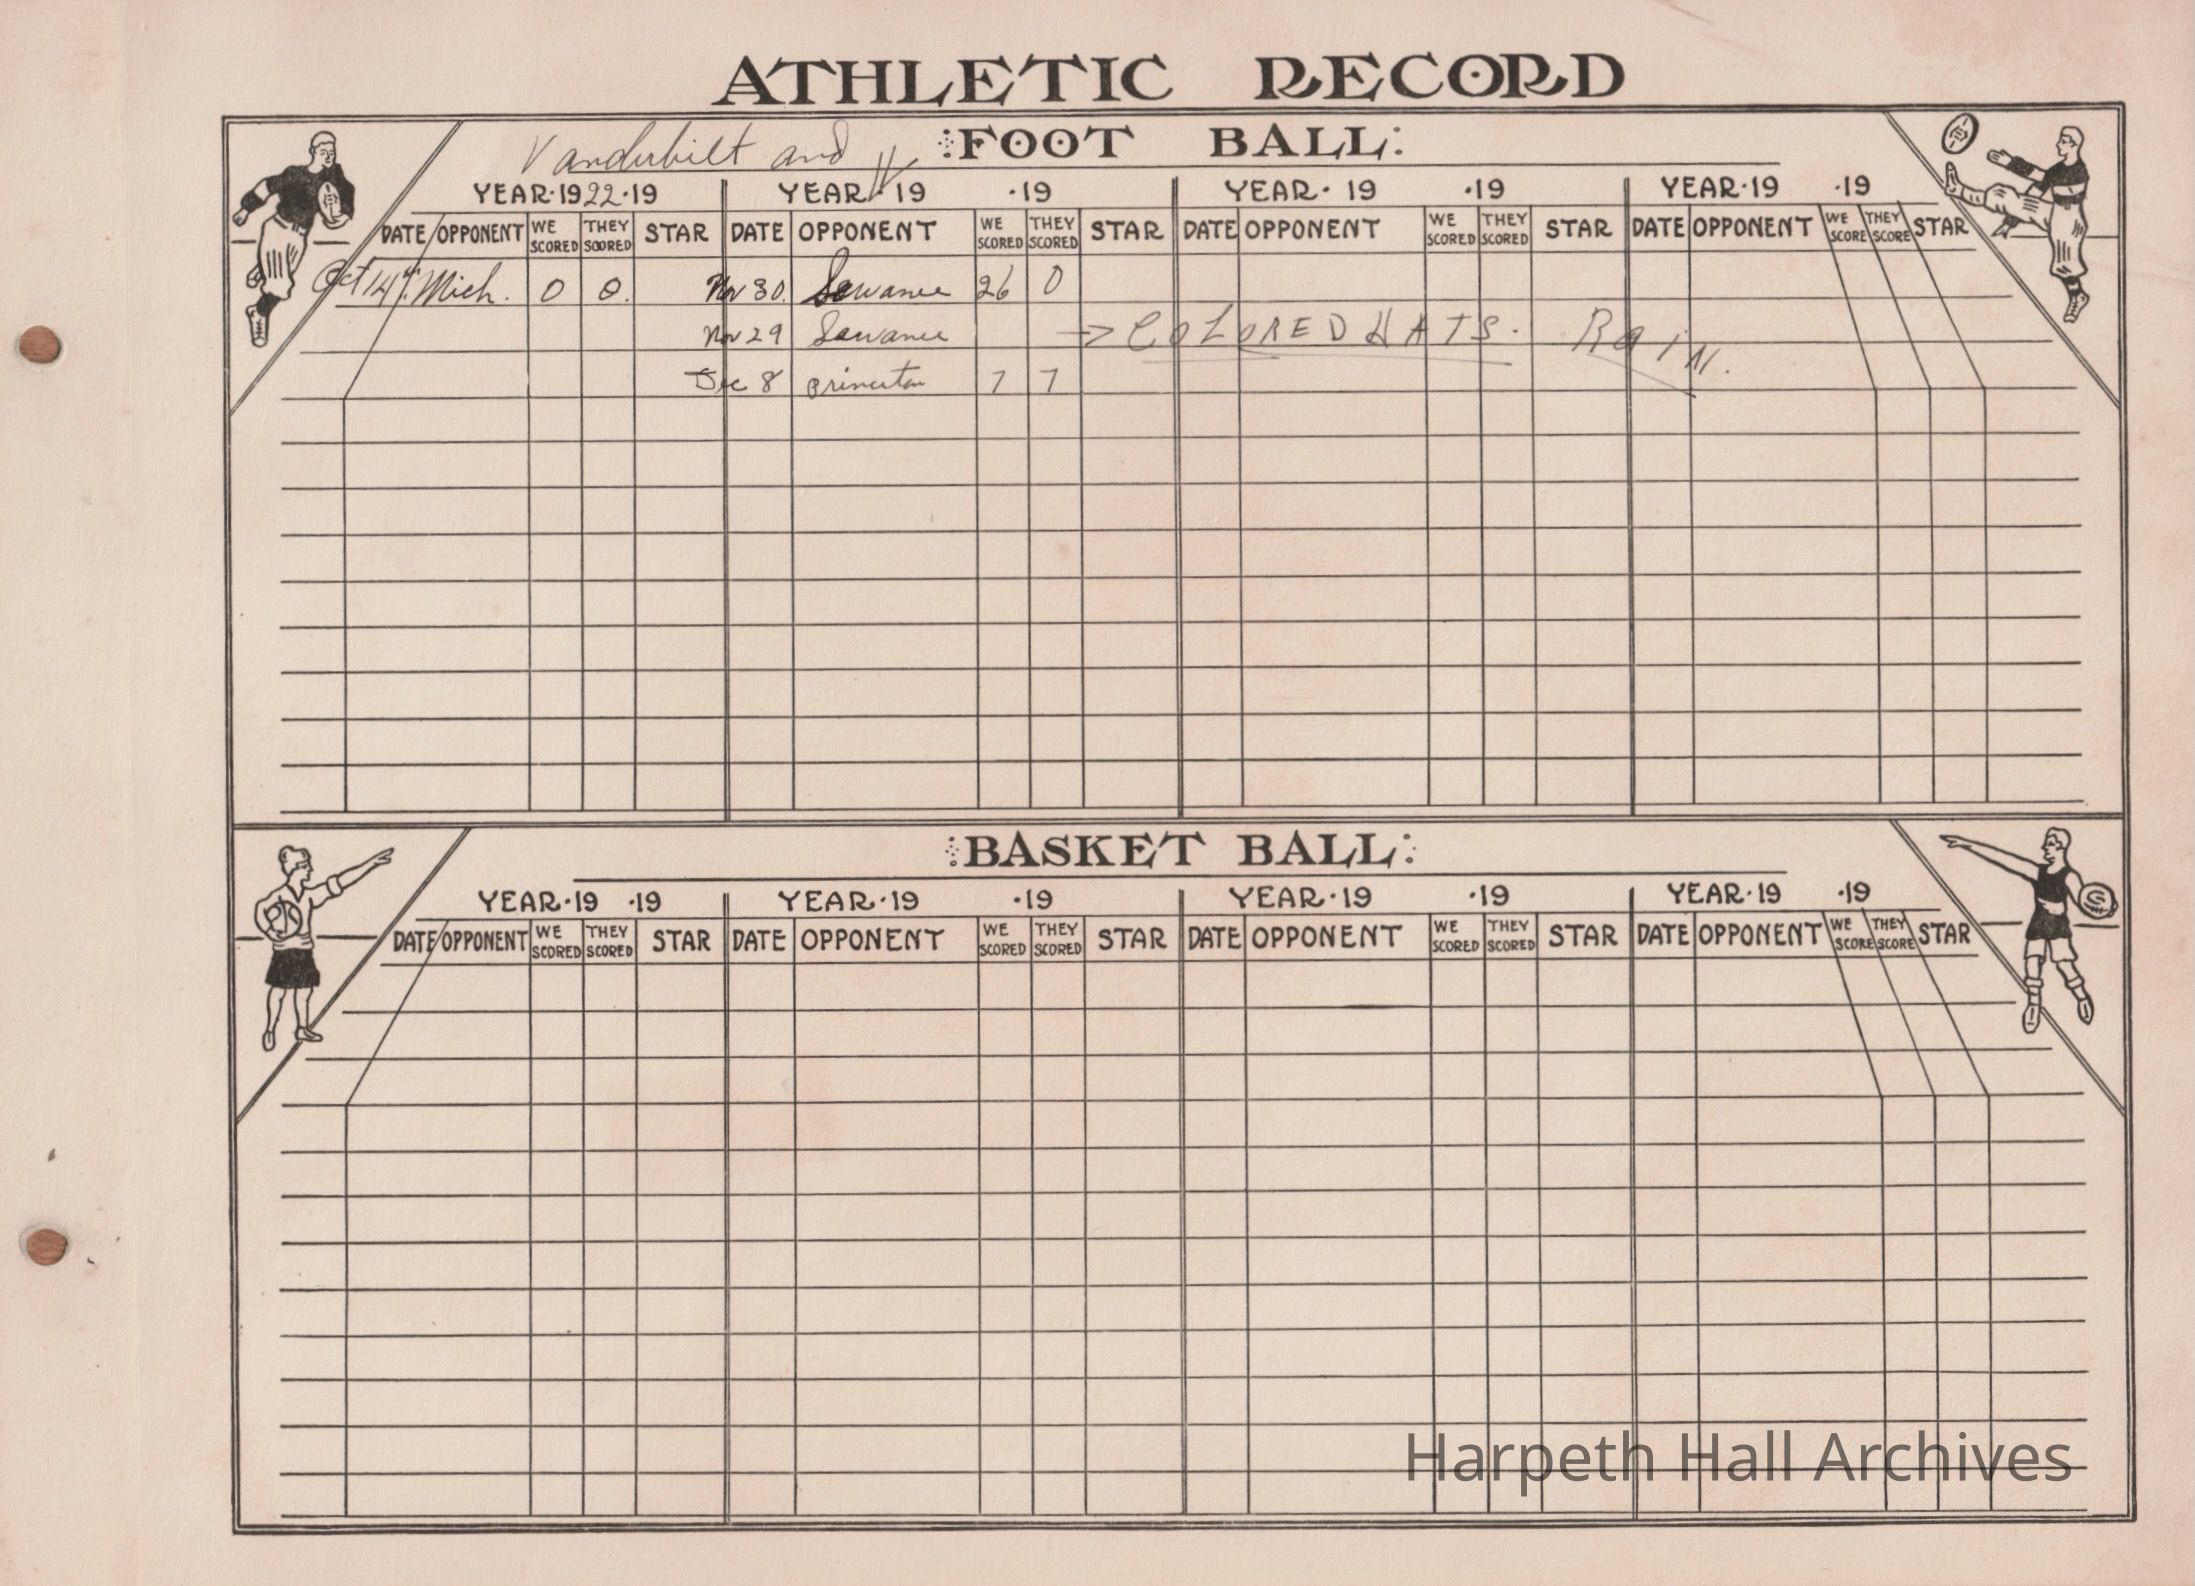 ATHLETIC RECORD
Vanderbilt and
:FOOT BALL:
YEAR·1922·19 YEAR· 19 ·19 YEAR· 19 ·19 YEAR·19 ·19
DATE OPPONENT WE SCORED THEY SCORED STAR DATE OPPONENT WE SCORED THEY SCORED STAR DATE OPPONENT WE SCORED THEY SCORED STAR DATE OPPONENT WE SCORE THEY SCORE STAR
Oct 14th Mich. 0 0. Nov 30. Sewanee 26 0
Nov 29 Sewanee → COLORED HATS. RAIN.
Dec 8 princeton 7 7
:BASKET BALL:
YEAR·19 ·19 YEAR·19 ·19 YEAR·19 ·19 YEAR·19 ·19
DATE OPPONENT WE SCORED THEY SCORED STAR DATE OPPONENT WE SCORED THEY SCORED STAR DATE OPPONENT WE SCORED THEY SCORED STAR DATE OPPONENT WE SCORE THEY SCORE STAR
Harpeth Hall Archives